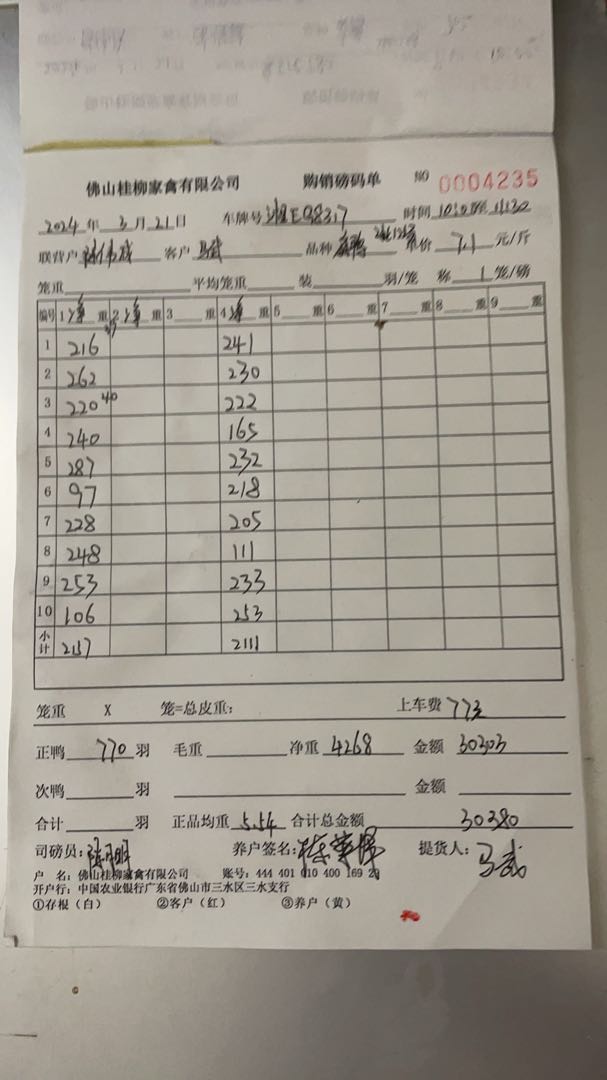 佛山桂柳家禽有限公司 购销磅码单 NO 0004235
2024 年 3 月 21 日 车牌号 湘E98317 时间
联营户 客户 马武 品种 单价 7.1 元/斤
笼重 平均笼重 装 羽/笼 称 1 笼/磅
编号 1 净 重 2 净 重 3 重 4 净 重 5 重 6 重 7 重 8 重 9
1 216 241
2 262 230
3 220 40 222
4 240 165
5 287 232
6 97 218
7 228 205
8 248 111
9 253 233
10 106 253
小计 2157 2111
笼重 X 笼=总皮重: 上车费 77元
正鸭 770 羽 毛重 净重 4268 金额 30303
次鸭 羽 金额
合计 羽 正品均重 5.54 合计总金额 30380
司磅员: 养户签名: 提货人: 马武
户 名: 佛山桂柳家禽有限公司 账号: 444 401 010 400 169 29
开户行: 中国农业银行广东省佛山市三水区三水支行
①存根(白) ②客户(红) ③养户(黄)